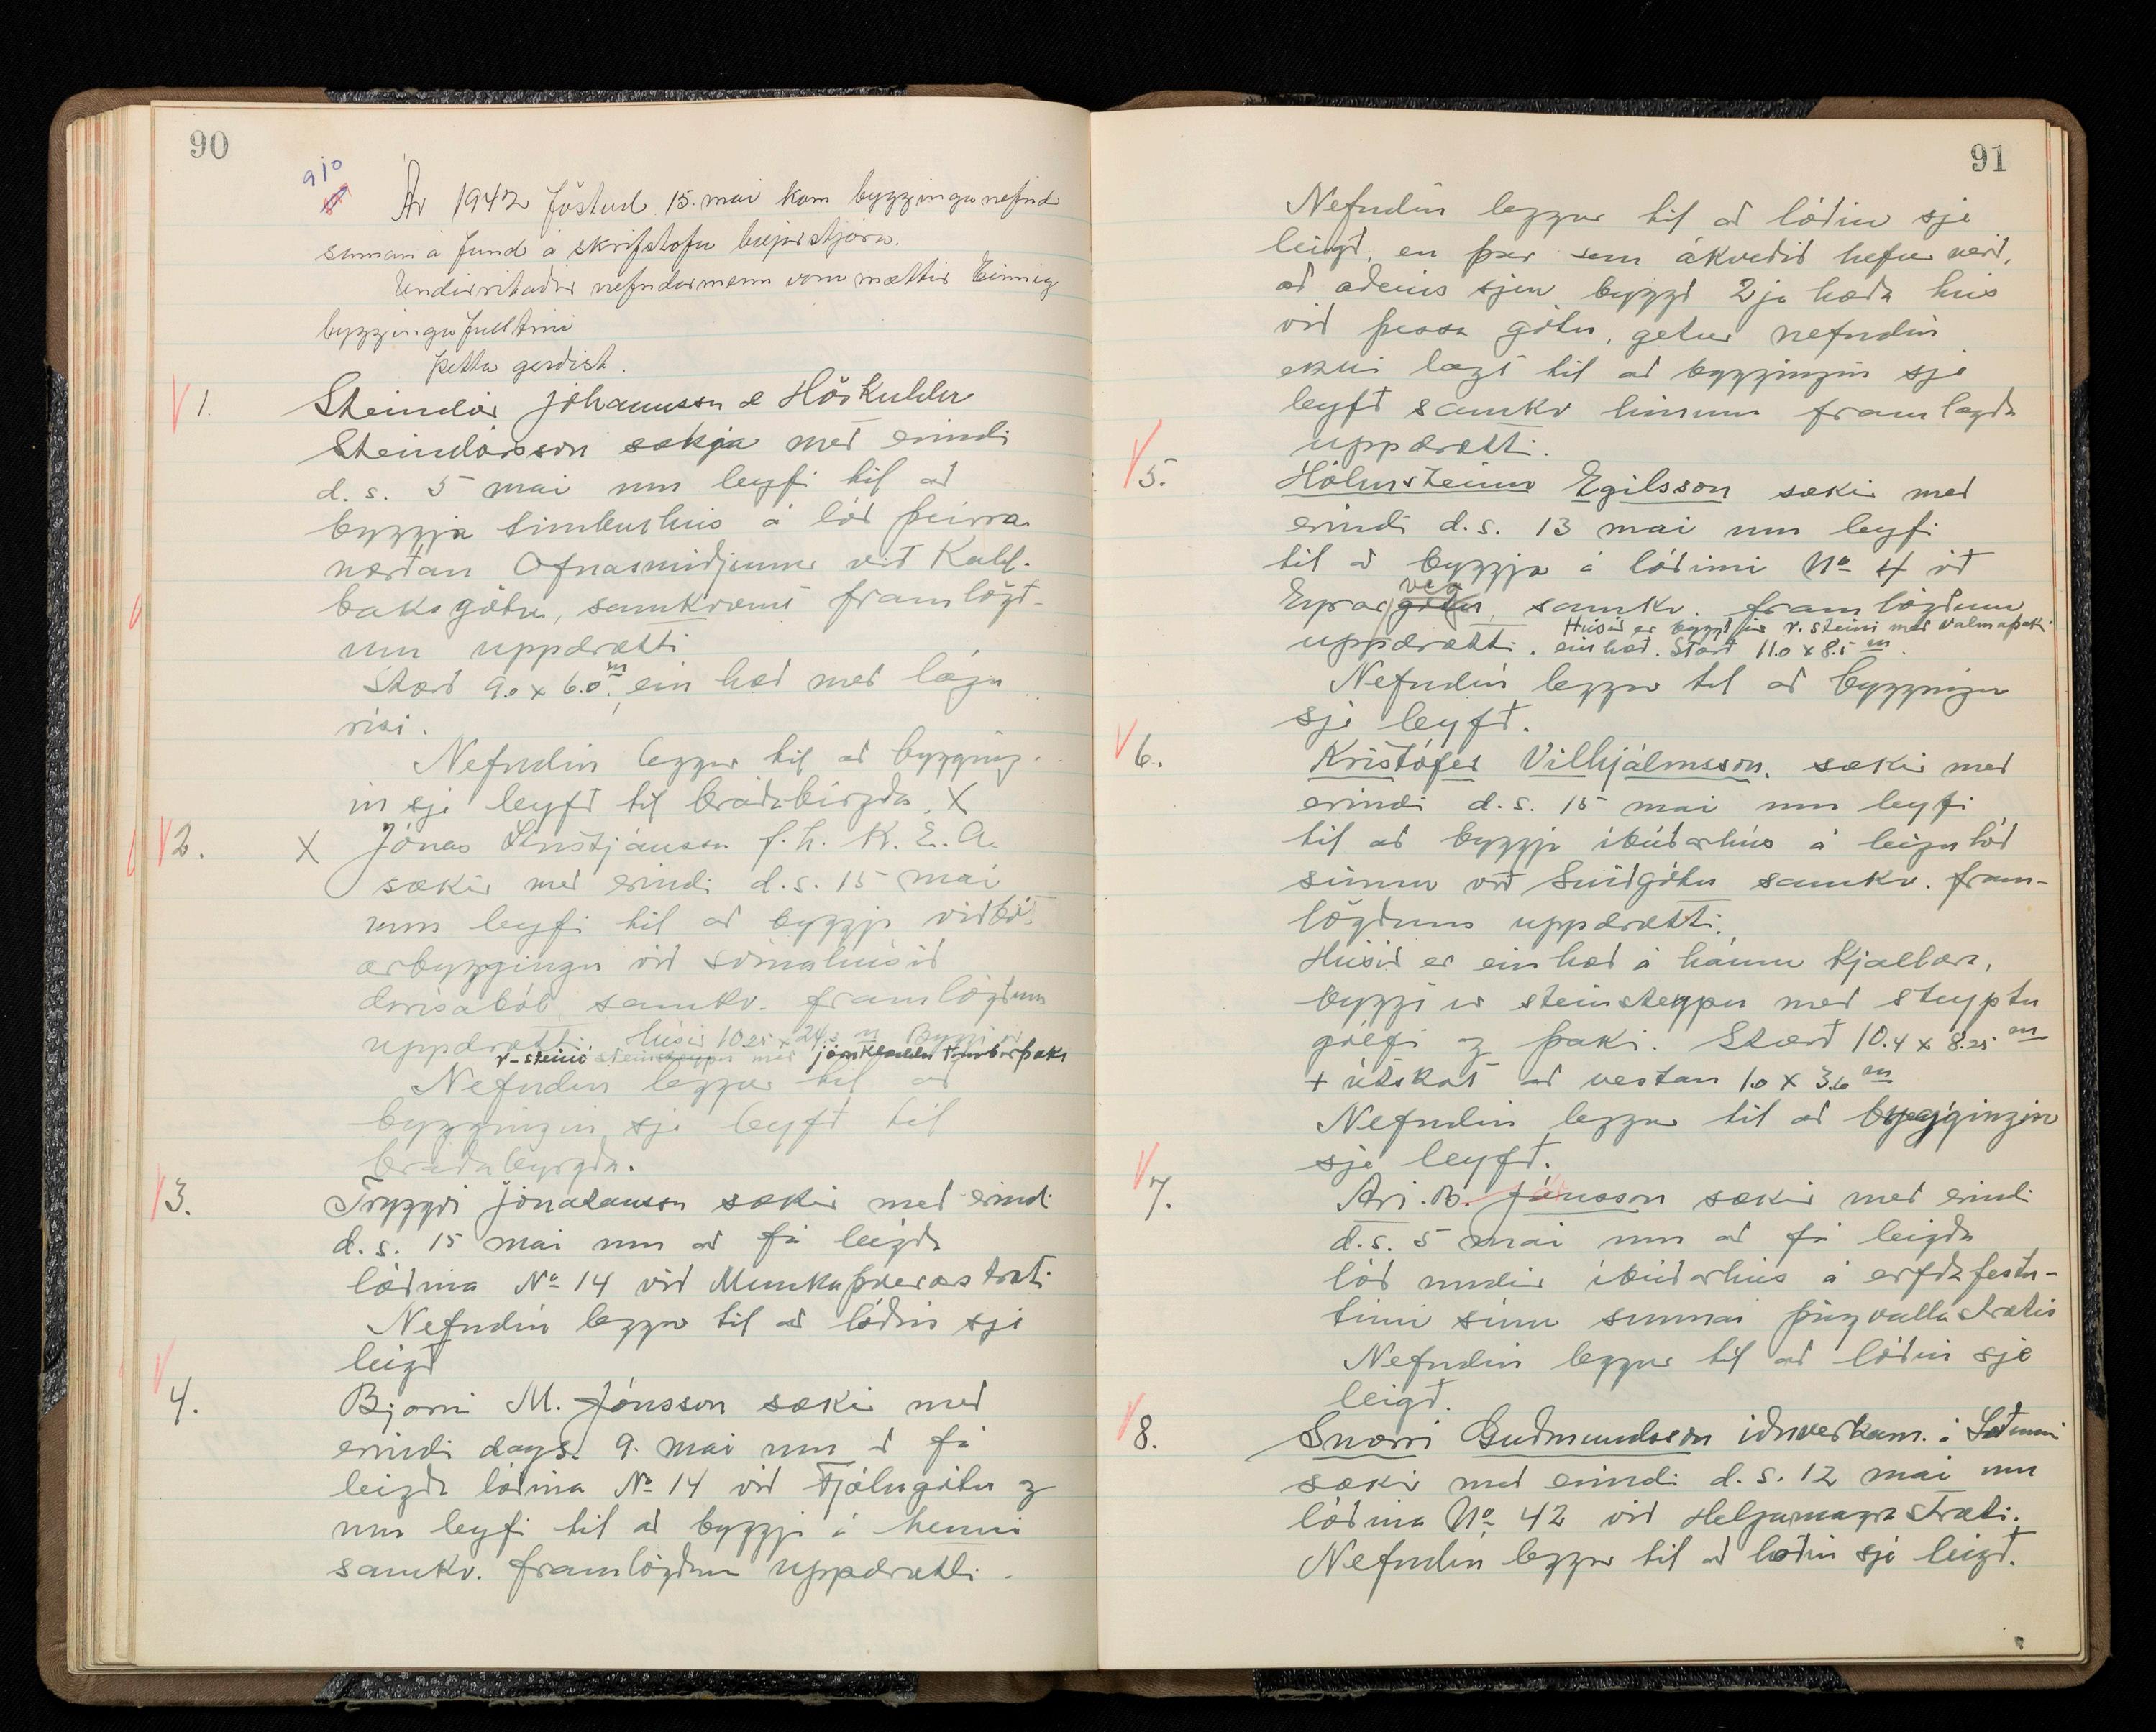 90
910
Ár 1942 föstud. 15. mai kom byggingunefnd
saman á fund á skrifstofu bæjarstjóra.
Undirritaðir nefndarmenn voru mættir Einnig
byggingafulltrúi
Þetta gerðist.
1. Steindór Jóhannsson & Höskuldur
Steindórsson sækja með erindi
d.s. 5 mai um leyfi til að
byggja timburhús á lóð þeirra
norðan Ofnasmiðjunnar við Kald-
baksgötu, samkvæmt framlögð-
um uppdrætti
Stærð 9.0 x 6.0 m, ein hæð með lágu
risi.
Nefndin leggur til að bygging-
in sje leyfð til bráðabirgða. X
2. X Jónas Kristjánsson f.h. K.E.A.
sækir með erindi d.s. 15 mai
um leyfi til að byggja viðbót-
arbyggingu við svínahúsið
Grísaból, samkv. framlögðum
uppdrætti. húsið 10.25 x 24.2 m Byggt úr
r-steini steinsteypu með járnklæddu timburþaki
Nefndin leggur til að
byggingin sje leyfð til
bráðabyrgða.
3. Tryggvi Jónatansson sækir með erindi
d.s. 15 mai um að fá leigða
lóðina No 14 við Munkaþverárstræti
Nefndin leggur til að lóðin sje
leigð
4. Bjarni M. Jónsson sækir með
erindi dags. 9. mai um að fá
leigða lóðina No 14 við Fjólugötu og
um leyfi til að byggja á henni
samkv. framlögðum uppdrætti.
91
Nefndin leggur til að lóðin sje
leigð, en þar sem ákveðið hefur verið,
að aðeins sjeu byggð 2ja hæða hús
við þessa götu, getur nefndin
ekki lagt til að byggingin sje
leyfð samkv hinum framlagða
uppdrætti.
5. Hólmsteinn Egilsson sækir með
erindi d.s. 13 mai um leyfi
til að byggja á lóðinni No 4 við
Eyrarveg götu, samkv. framlögðum
Húsið er byggt úr r.steini með valmaþaki
uppdrætti. ein hæð. Stærð 11.0 x 8.5 m.
Nefndin leggur til að byggingin
sje leyfð.
6. Kristófer Vilhjálmsson. sækir með
erindi d.s. 15 mai um leyfi
til að byggja íbúðarhús á leigulóð
sinni við Sniðgötu samkv. fram-
lögðum uppdrætti.
Húsið er ein hæð á háum kjallara,
byggt úr steinsteypu með steyptu
gólfi og þaki. Stærð 10.4 x 8.25 m
+ útskot að vestan 1.0 x 3.6 m
Nefndin leggur til að byggingin
sje leyfð.
7. Ari. B. Jónsson sækir með erindi
d.s. 5 mai um að fá leigða
lóð undir íbúðarhús á erfðafestu-
túni sínu sunnan Þingvallastrætis
Nefndin leggur til að lóðin sje
leigð.
8. Snorri Guðmundsson iðnverkam.
sækir með erindi d.s. 12 mai um
lóðina No 42 við Helgamagrastræti.
Nefndin leggur til að lóðin sje leigð.